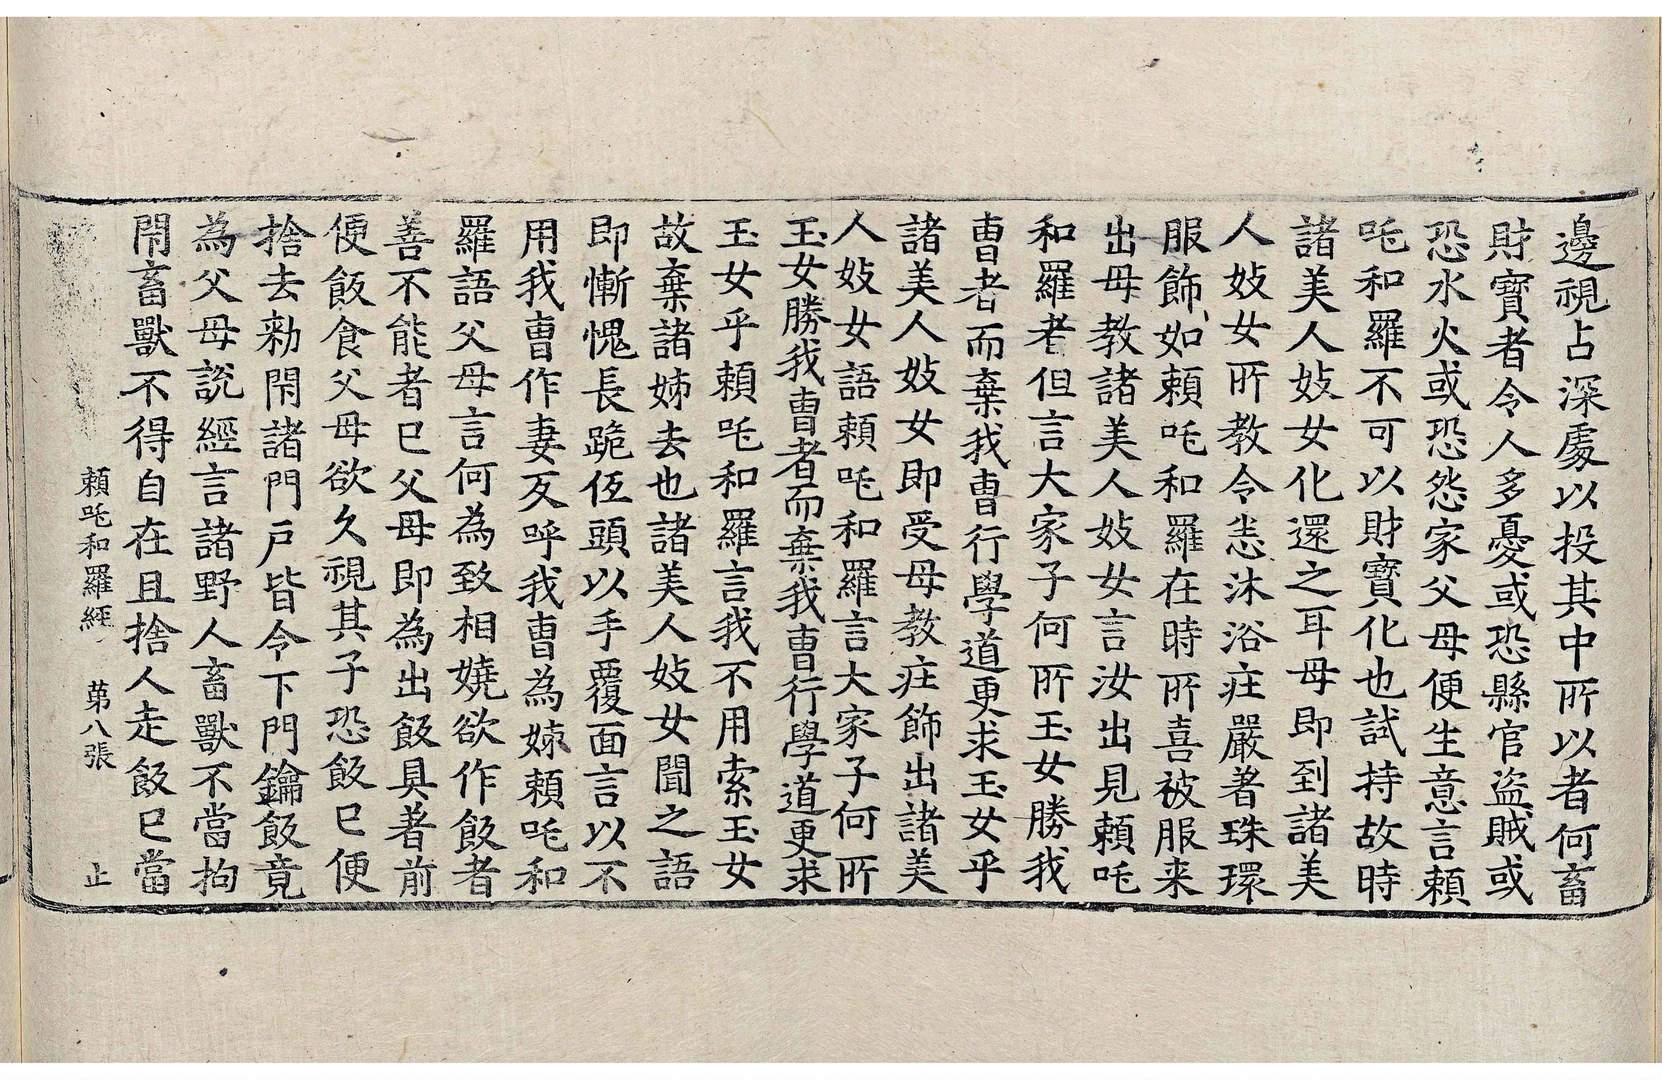 邊視占深處以投其中所以者何畜
財寶者令人多憂或恐縣官盜賊或
恐水火或恐怨家父母便生意言賴
吒和羅不可以財寶化也試持故時
諸美人妓女化還之耳母即到諸美
人妓女所教令恙沐浴庄嚴著珠環
服飾如賴吒和羅在時所喜被服来
出母教諸美人妓女言汝出見賴吒
和羅者但言大家子何所玉女勝我
曺者而棄我曺行學道更求玉女乎
諸美人妓女即受母教庄飾出諸美
人妓女語賴吒和羅言大家子何所
玉女勝我曺者而棄我曺行學道更求
玉女乎賴吒和羅言我不用索玉女
故棄諸姊去也諸美人妓女聞之語
即慚愧長跪伍頭以手覆面言以不
用我曺作妻亥呼我曺為姊賴吒和
羅語父母言何為致相嬈欲作飯者
善不能者已父母即為出飯具著前
便飯食父母欲久視其子恐飯已便
捨去勑閇諸門戶皆令下門鑰飯竟
為父母說經言諸野人畜獸不當拘
閇畜獸不得自在且捨人走飯已當
賴吒和羅經 苐八張 止